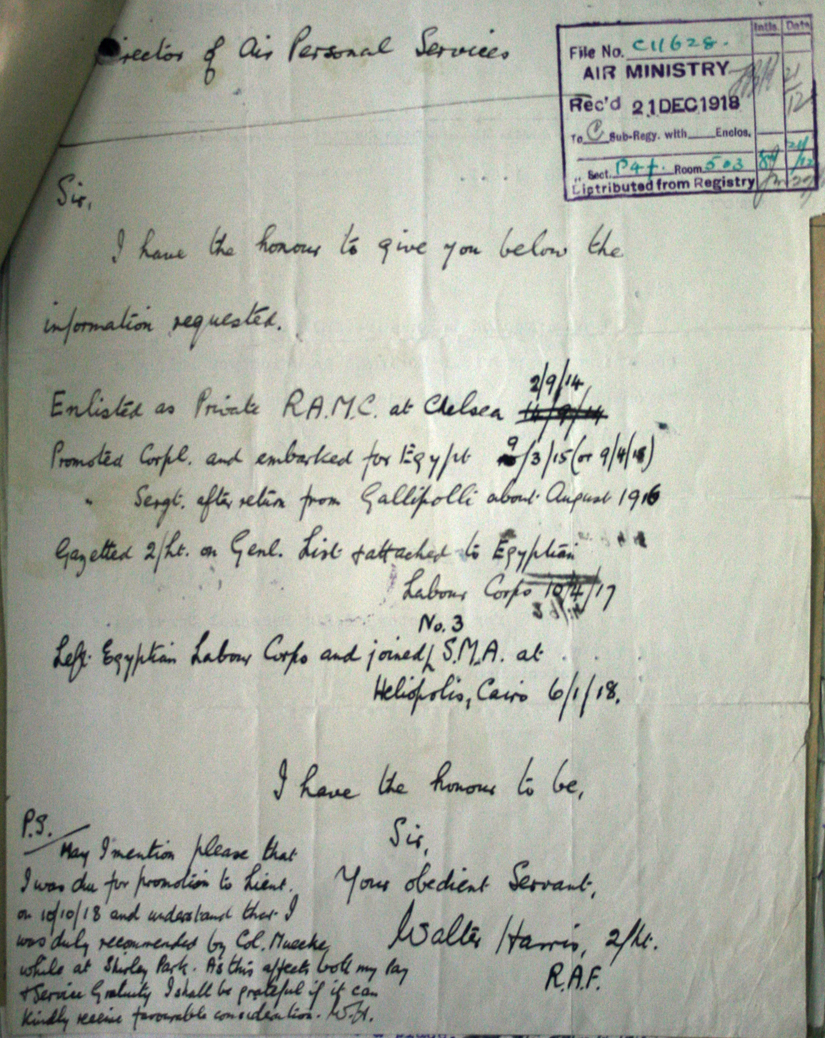 Director of Air Personal Services
Intls. Date
File No. C11628.
AIR MINISTRY
Rec'd 21 DEC 1918
21/12
To C Sub-Regy. with Enclos.
" Sect. P4 Room 503
Distributed from Registry
Sir,
I have the honour to give you below the
information requested.
2/9/14
Enlisted as Private R.A.M.C. at Chelsea
Promoted Corpl. and embarked for Egypt 9/3/15 (or 9/4/15)
" Sergt. after return from Gallipolli about August 1916
Gazetted 2/Lt. on Genl. List & attached to Egyptian
Labour Corps 10/4/17
No. 3
Left Egyptian Labour Corps and joined S.M.A. at
Heliopolis, Cairo 6/1/18.
I have the honour to be,
Sir,
Your obedient Servant,
Walter Harris, 2/Lt.
R.A.F.
P.S.
May I mention please that
I was due for promotion to Lieut.
on 10/10/18 and understand that I
was duly recommended by Col. Muecke
while at Shirley Park. As this affects both my pay
& Service Gratuity I shall be grateful if it can
kindly receive favourable consideration. W.H.